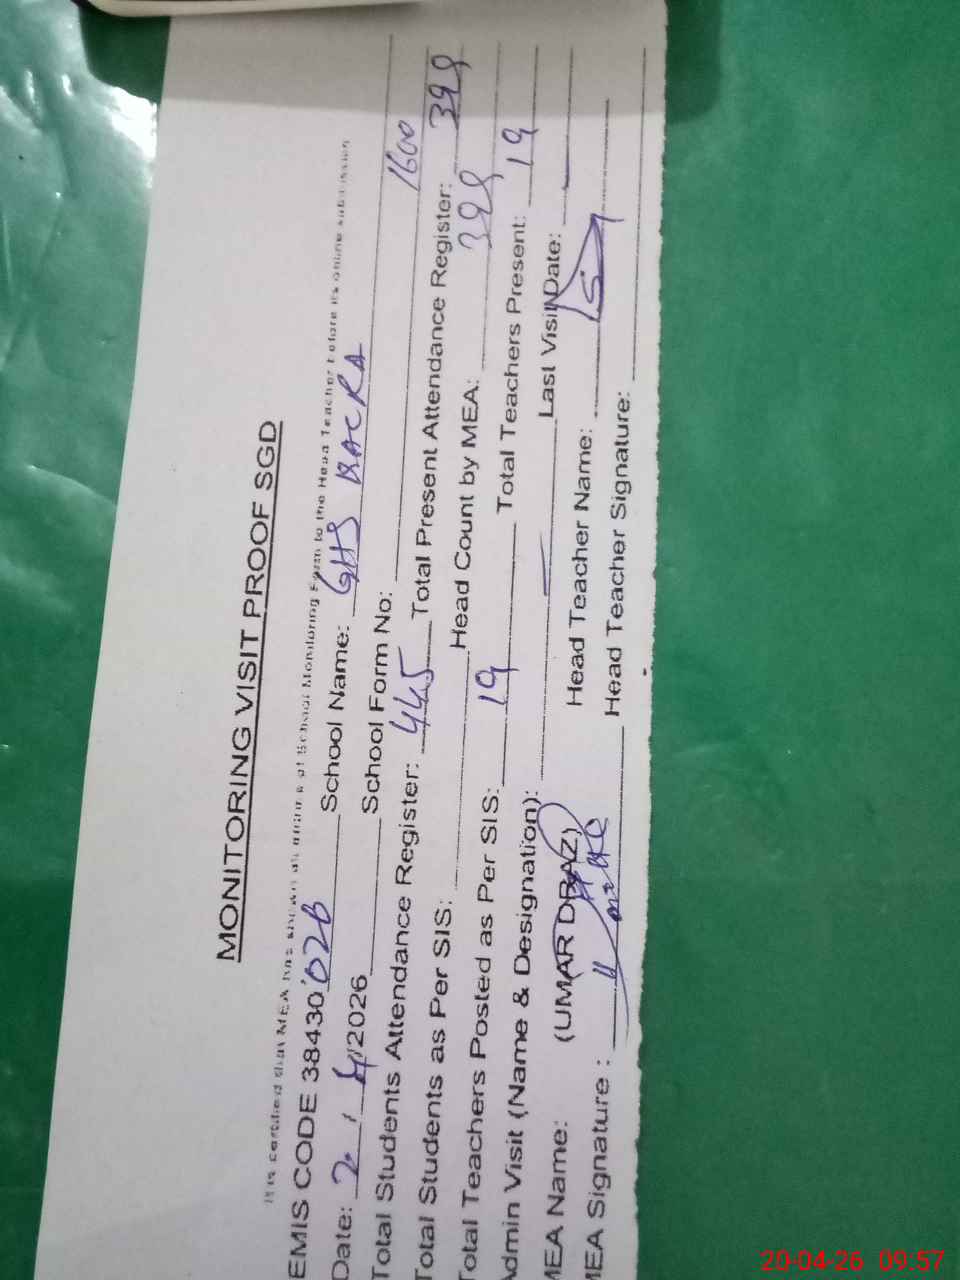 MONITORING VISIT PROOF SGD
It is certified that MEA has shown all of School Monitoring Form to the Head Teacher before its online submission
EMIS CODE 38430 028 School Name: GHS
Date: 2 / 4/2026 School Form No: 1600
Total Students Attendance Register: 445 Total Present Attendance Register: 399
Total Students as Per SIS: Head Count by MEA: 399
Total Teachers Posted as Per SIS: 19 Total Teachers Present: 19
Admin Visit (Name & Designation): — Last Visit Date: —
MEA Name: (UMAR DRAZ) Head Teacher Name:
MEA Signature : Head Teacher Signature:
20-04-26 09:57